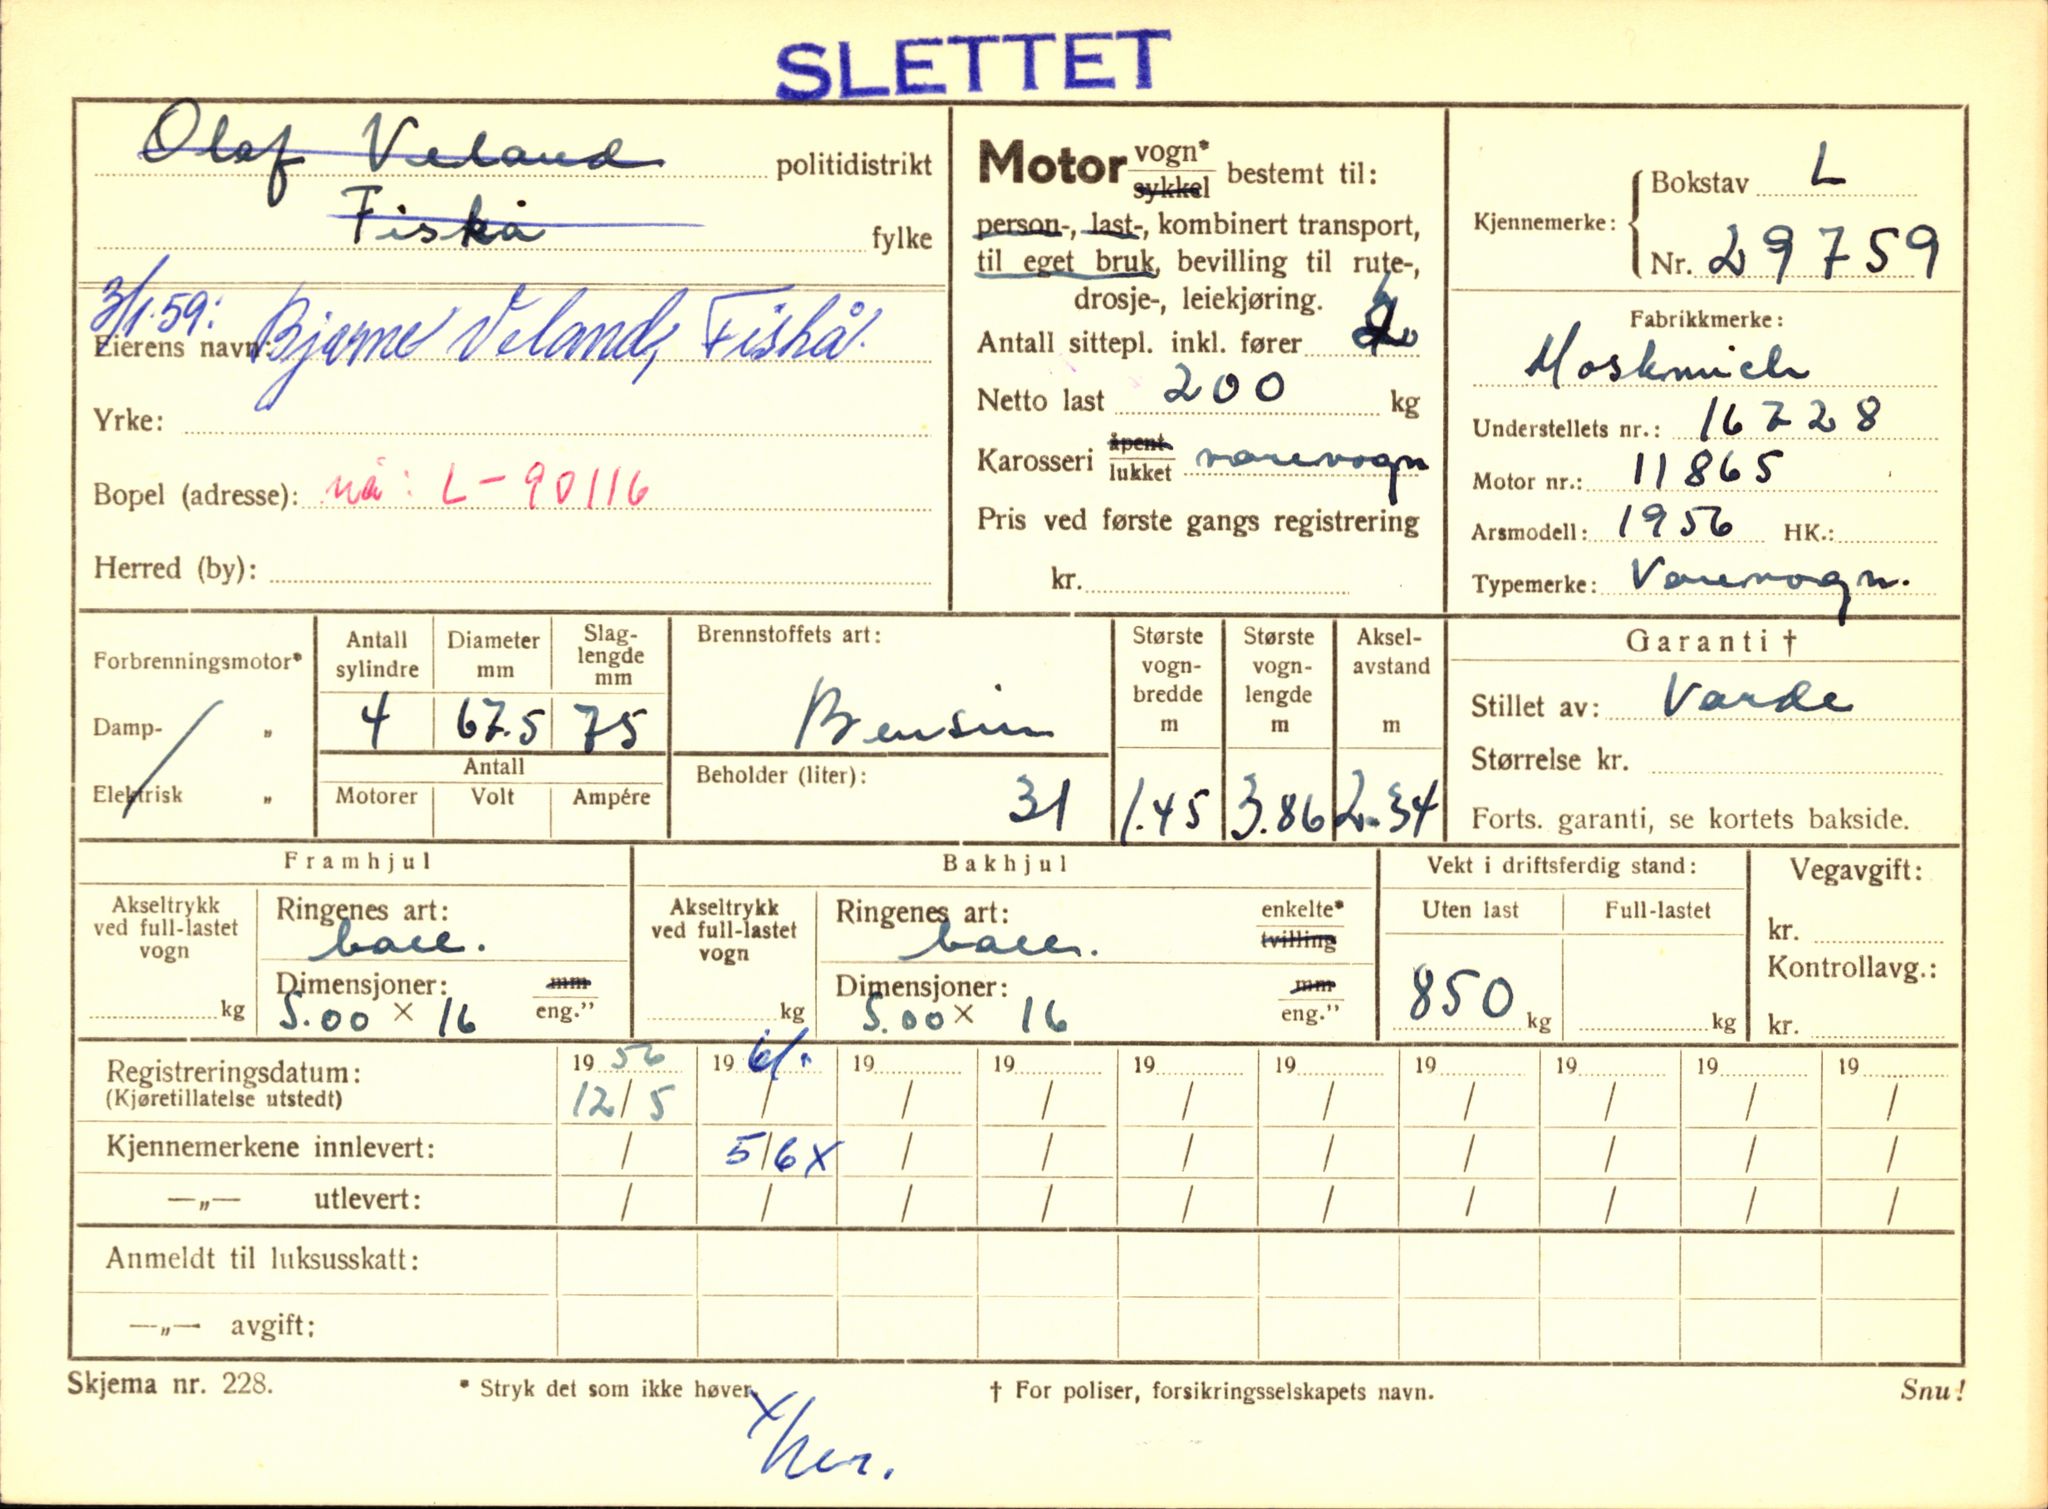 SLETTET
Olaf Veland politidistrikt
Fiskå fylke
3/1.59: Bjarne Veland, Fiskå.
Eierens navn:
Yrke:
Bopel (adresse): nå: L-90116
Herred (by):
Motor vogn* sykkel bestemt til:
person-, last-, kombinert transport,
til eget bruk, bevilling til rute-,
drosje-, leiekjøring.
Antall sittepl. inkl. fører
Netto last 200 kg
Karosseri åpent lukket varevogn
Pris ved første gangs registrering
kr.
Kjennemerke: Bokstav L
Nr. 29759
Fabrikkmerke:
Moskvich
Understellets nr.: 16728
Motor nr.: 11865
Arsmodell: 1956 HK.:
Typemerke: Varevogn.
Forbrenningsmotor*
Damp- „
Elektrisk „
Antall sylindre
Diameter mm
Slag-
lengde
mm
4 67.5 75
Antall
Motorer Volt Ampére
Brennstoffets art:
Bensin
Beholder (liter):
31
Største
vogn-
bredde
m
1.45
Største
vogn-
lengde
m
3.86
Aksel-
avstand
m
2.34
Garanti †
Stillet av: Varde
Størrelse kr.
Forts. garanti, se kortets bakside.
Framhjul
Akseltrykk
ved full-lastet
vogn
kg
Ringenes art:
ball.
Dimensjoner: mm
5.00 × 16 eng."
Bakhjul
Akseltrykk
ved full-lastet
vogn
kg
Ringenes art: enkelte*
ball. tvilling
Dimensjoner: mm
5.00 × 16 eng."
Vekt i driftsferdig stand:
Uten last Full-lastet
850 kg kg
Vegavgift:
kr.
Kontrollavg.:
kr.
Registreringsdatum: 19 56 19 61 19 19 19 19 19 19 19 19
(Kjøretillatelse utstedt) 12/5 / / / / / / / / /
Kjennemerkene innlevert: / 5/6 x / / / / / / / /
—„— utlevert: / / / / / / / / / /
Anmeldt til luksusskatt:
—„— avgift:
Skjema nr. 228. * Stryk det som ikke høver. † For poliser, forsikringsselskapets navn. Snu!
x/her.